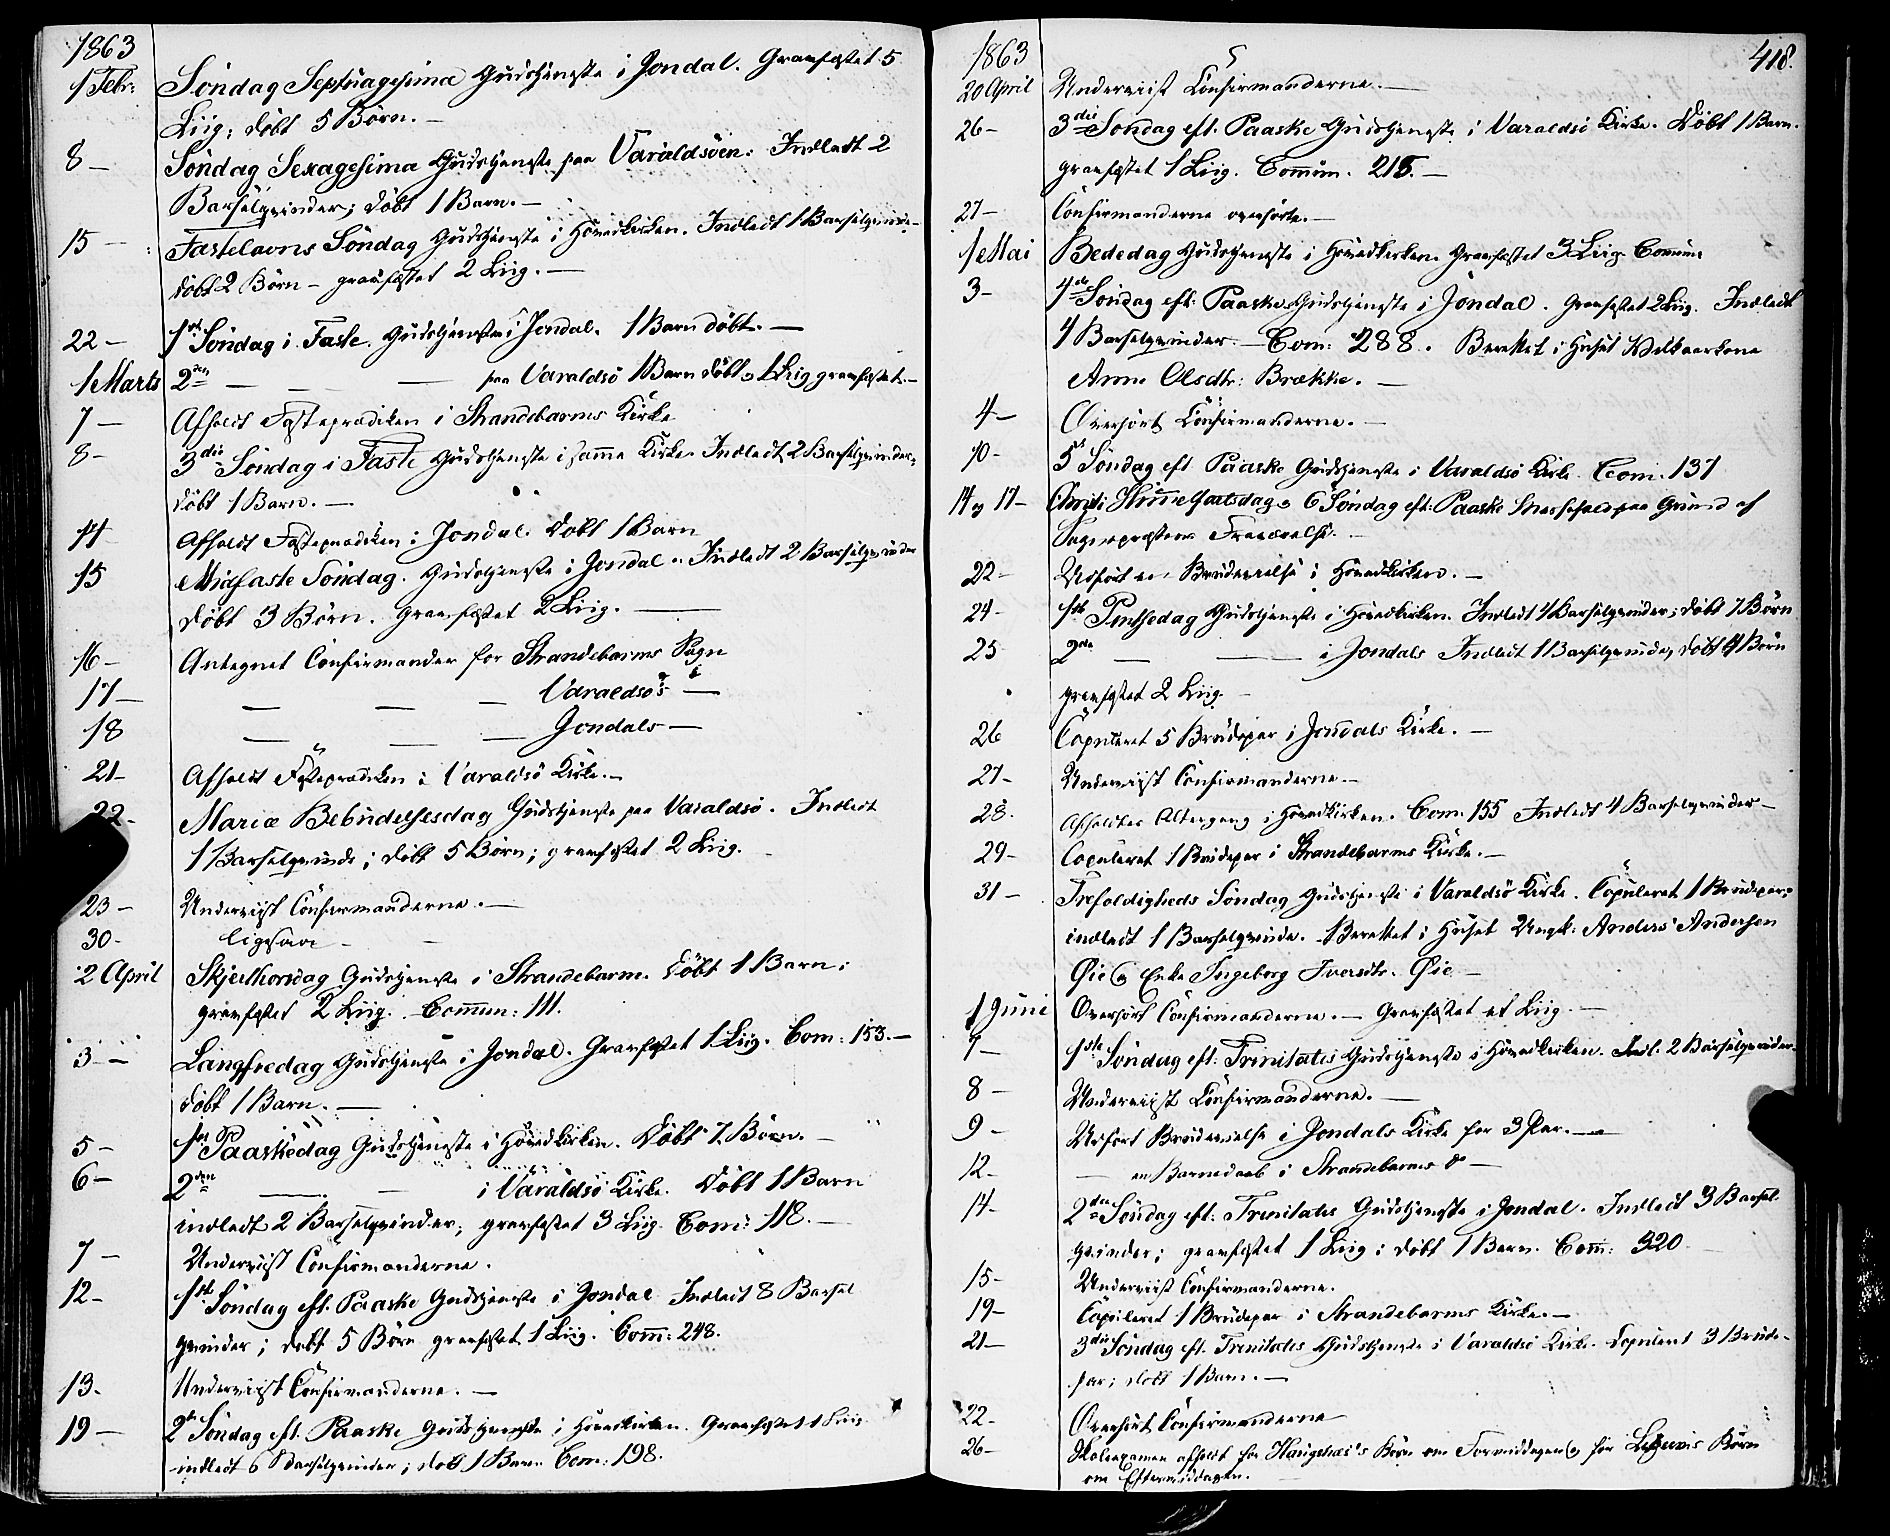 1863
1 Febr: Søndag Septuagesima Gudstjeneste i Jondal. Gravfæstet 5
Liig; døbt 5 Børn. —
8 — Søndag Sexagesima Gudstjeneste paa Varaldsöen: Indledt 2
Barselqvinder; døbt 1 Barn. —
15 — Fastelavns Søndag Gudstjeneste i Hovedkirken. Indledt 1 Barselqvinde
døbt 2 Børn — gravfæstet 2 Liig. —
22 — 1ste Søndag i Faste. Gudstjeneste i Jondal. 1 Barn døbt. —
1 Marts 2den — — — paa Varaldsö 1 Barn døbt, 1 Liig gravfæstet. —
7 — Afholdt Fasteprædiken i Strandebarms Kirke
8 — 3die Søndag i Faste Gudstjeneste i samme Kirke. Indledt 2 Barselqvinder,
døbt 1 Barn. —
14 Afholdt Fasteprædiken i Jondal. Døbt 1 Barn
15 Midfaste Søndag. Gudstjeneste i Jondal. Indledt 2 Barselqvinder
døbt 3 Børn. Gravfæstet 2 Liig. —
16 — Antegnet Confirmander for Strandebarms Sogn
17 — — — — Varaldsö's —
18 — — — Jondals —
21 — Afholdt Fasteprædiken i Varaldsö Kirke. —
22 — Mariæ Bebudelsesdag Gudstjeneste paa Varaldsö. Indledt
1 Barselqvinde; døbt 5 Børn; gravfæstet 2 Liig.
23 — Underviist Confirmanderne. —
30 — ligesaa —
2 April Skjerthorsdag Gudstjeneste i Strandebarm. Døbt 1 Barn;
gravfæstet 2 Liig. Commun: 111.
3 — Langfredag Gudstjeneste i Jondal. Gravfæstet 1 Liig. Com: 153. —
døbt 1 Barn. —
5 — 1ste Paaskedag Gudstjeneste i Hovedkirken. Døbt 7 Børn. —
6 — 2den — — i Varaldsö Kirke. Døbt 1 Barn
indledt 2 Barselqvinder; gravfæstet 3 Liig. Com: 118. —
7 — Underviist Confirmanderne.
12 — 1ste Søndag eft. Paaske Gudstjeneste i Jondal Indledt 8 Barsel
qvinder; døbt 5 Børn gravfæstet 1 Liig. Comm: 248.
13 — Underviist Confirmanderne. —
19 — 2den Søndag eft. Paaske Gudstjeneste i Hovedkirken. Gravfæstet 1 Liig
indledt 6 Barselqvinder; døbt 1 Barn Com: 198.
418.
1863
20 April Underviist Confirmanderne. —
26 — 3die Søndag eft. Paaske Gudstjeneste i Varaldsö Kirke. Døbt 1 Barn.
gravfæstet 1 Liig. Commun. 215. —
27 — Confirmanderne overhørte. —
1 Mai Bededag Gudstjeneste i Hovedkirken. Gravfæstet 3 Liig.
3 — 4de Søndag eft. Paaske Gudstjeneste i Jondal. Gravfæstet 2 Liig. Indledt
4 Barselqvinder. — Com: 288. Berettet i Huset
Anna Olsdtr: Brække. —
4 — Overhørt Confirmanderne. —
10 — 5 Søndag eft. Paaske Gudstjeneste i Varaldsö Kirke. Com. 137
14 og 17 — Christi Himmelfartsdag og 6 Søndag eft: Paaske Messefald paa Grund af
Sognepræstens Fraværelse. —
22 — Udført en Brudevielse i Hovedkirken. —
24 — 1ste Pintsedag Gudstjeneste i Hovedkirken. Indledt 4 Barselqvinder; døbt 7 Børn
25 2den — — i Jondals Indledt 1 Barselqvinde, døbt 4 Børn
gravfæstet 2 Liig. —
26 Copuleret 5 Brudepar i Jondals Kirke. —
27 — Underviist Confirmanderne. —
28. Afholdtes Altergang i Hovedkirken. Com. 155 Indledt 4 Barselqvinder —
29 — Copuleret 1 Brudepar i Strandebarms Kirke. —
31 — Trefoldigheds Søndag Gudstjeneste i Varaldsö Kirke. Copuleret 1 Brudepar;
indledt 1 Barselqvinde. Berettet i Huset Ungk: Anders Andersen
Øie og Enke Ingeborg Iversdtr. Øie —
1 Juni Overhørt Confirmanderne. — Gravfæstet et Liig. —
7 — 1ste Søndag eft. Trinitatis Gudstjeneste i Hovedkirken. Indl. 2 Barselqvinder.
8 — Underviist Confirmanderne. —
9 — Udført Brudevielse i Jondals Kirke for 3 Par. —
12 — — en Barnedaab i Strandebarms —
14 — 2den Søndag eft: Trinitatis Gudstjeneste i Jondal. Indledt 3 Barsel-
qvinder; gravfæstet 1 Liig; døbt 1 Barn. Comm: 320
15 — Underviist Confirmanderne.
19 — Copuleret 1 Brudepar i Strandebarms Kirke. —
21 — 3die Søndag eft. Trinitatis Gudstjeneste i Varaldsö Kirke. Copuleret 3 Brude-
par; døbt 1 Barn. —
22 — Overhørt Confirmanderne
26 — Skoleexamen afholdt for Børn om Formiddagen og for Børn
om Eftermiddagen. —